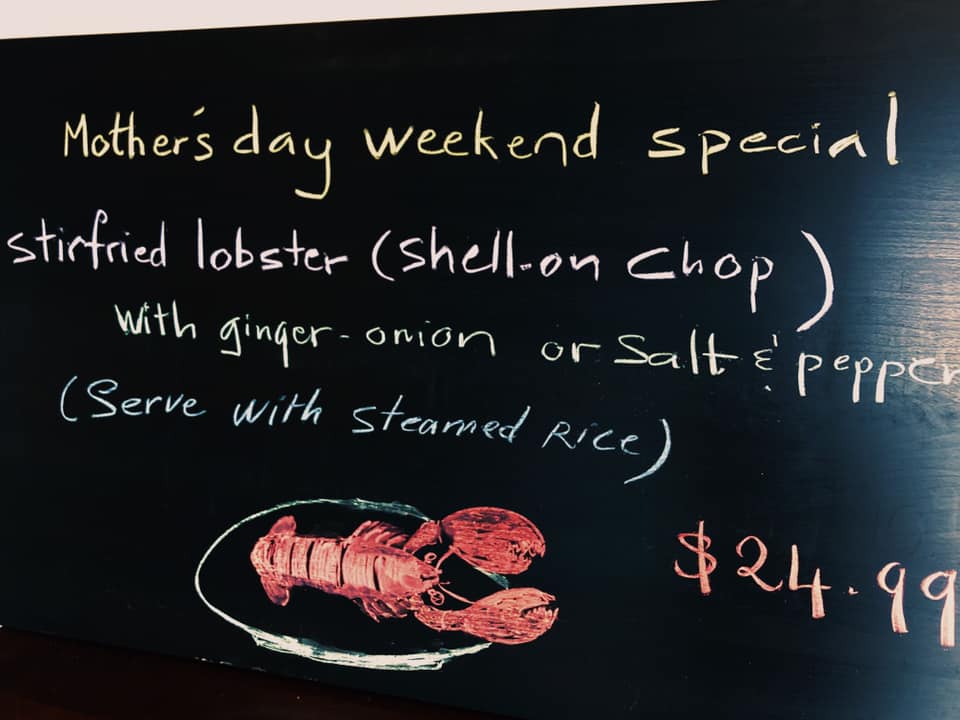 Mother's day weekend special
stirfried lobster (shell-on chop)
with ginger-onion or salt & pepper
(Serve with steamed Rice)
$24.99